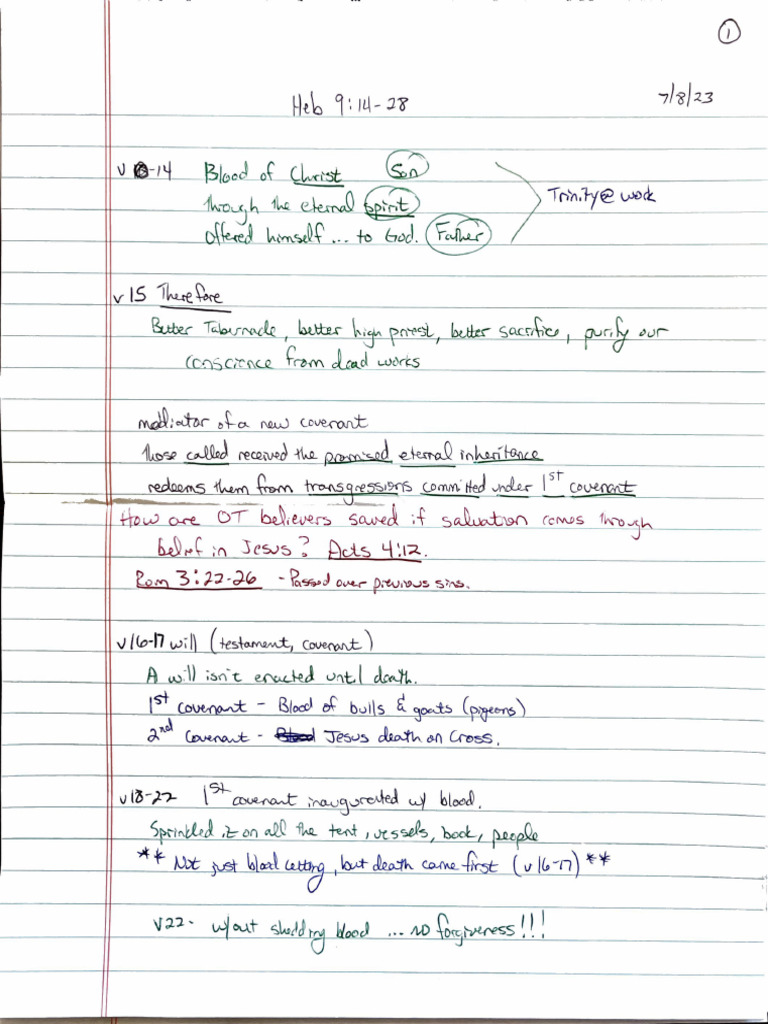 1
7/8/23
Heb 9:14-28
v 14 Blood of Christ Son
through the eternal spirit
offered himself ... to God. Father
Trinity @ work
v 15 Therefore
Better Tabernacle, better high priest, better sacrifice, purify our
conscience from dead works
mediator of a new covenant
Those called received the promised eternal inheritance
redeems them from transgressions committed under 1st covenant
How are OT believers saved if salvation comes through
belief in Jesus? Acts 4:12.
Rom 3:22-26 - Passed over previous sins.
v16-17 will (testament, covenant)
A will isn't enacted until death.
1st covenant - Blood of bulls & goats (pigeons)
2nd Covenant - Blood Jesus death on Cross.
v18-22 1st covenant inaugurated w/ blood.
Sprinkled it on all the tent, vessels, book, people
** Not just blood letting, but death came first (v16-17) **
v22- w/out shedding blood ... no forgiveness!!!